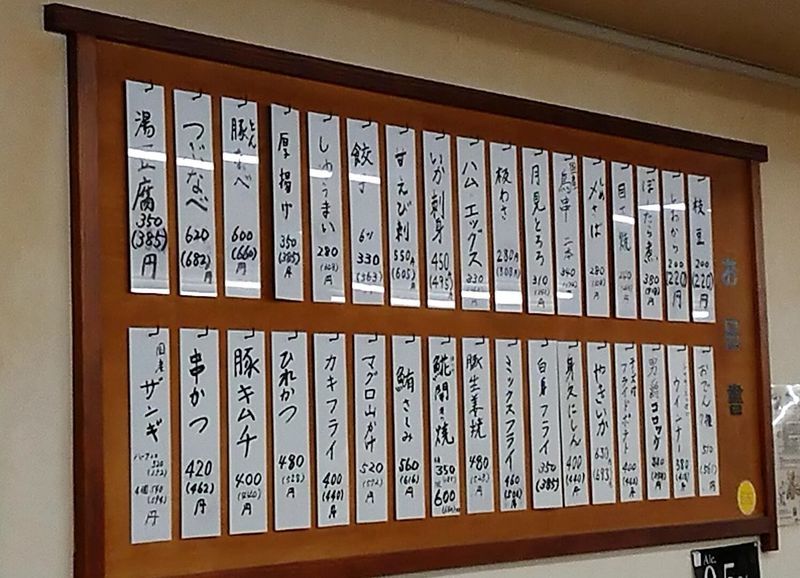 お品書
枝豆 200 (220) 円
200 (220) 円
ぼたら煮 380 円
目 焼
しめさば 280
鳥串 二本 340
月見とろろ 310
板わさ 280円 (308円)
ハムエッグス 330
いか刺身 450 (495) 円
甘えび刺 550円 (605) 円
餃子 6ヶ 330 (363) 円
しゅうまい 280 円
厚揚げ 350 (385) 円
豚なべ 600 (660) 円
とん
つくなべ 620 (682) 円
湯豆腐 350 (385) 円
おでん 7種 510 (561) 円
ウインナー 380 円
男爵コロッケ 円
フライドポテト 400 (440) 円
やきいか 630 (693) 円
身欠にしん 400 (440) 円
白身フライ 350 (385)
ミックスフライ 460 円
豚生姜焼 480 円
鯱の開き焼 350 600
鮪さしみ 560 (616) 円
マグロ山かけ 520 (572) 円
カキフライ 400 (440) 円
ひれかつ 480 (528) 円
豚キムチ 400 (440) 円
串かつ 420 (462) 円
国産 ザンギ ハーフ 4個 540 (594) 円
Alc.